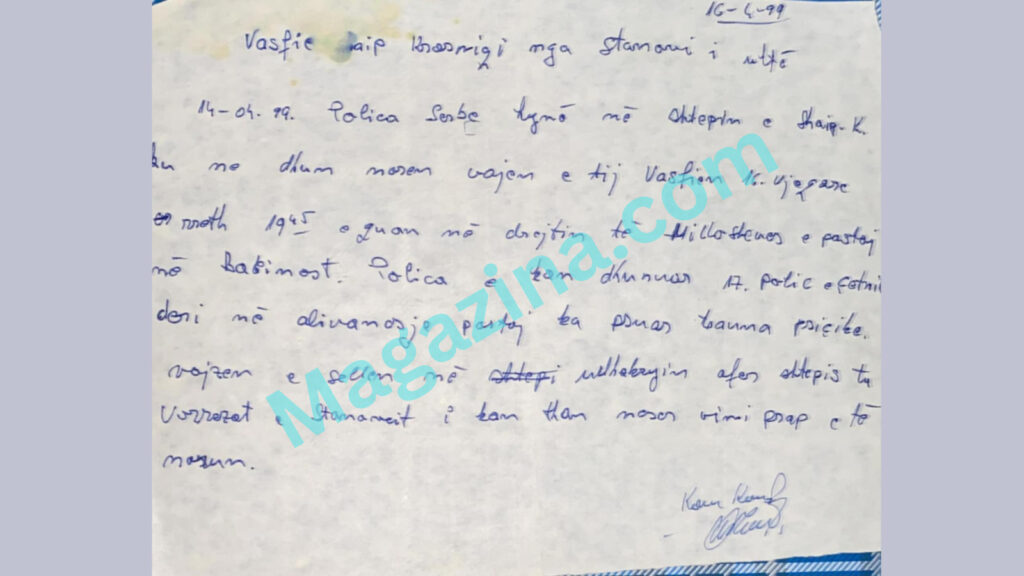 16-4-99
Vasfie Saip Krasniqi nga Stanovci i ultë
14-04.99. Polica Serbe hynë në shtepin e Shaip-K.
ku me dhun moren vajen e tij Vasfien 16. vjeqare
rreth 1945 e quan në drejtim të Milloshevos e pastaj
në Babimost. Polica e kan dhunuar 17. polic e çetnik
deri në alivanosje pastaj ka psuar trauma psiçike.
vajzen e sellen në shtepi udhekryqin afer shtepis tu
Vorrezat e Stanavcit i kan than neser vimi prap e të
marrum.
Magazina.com